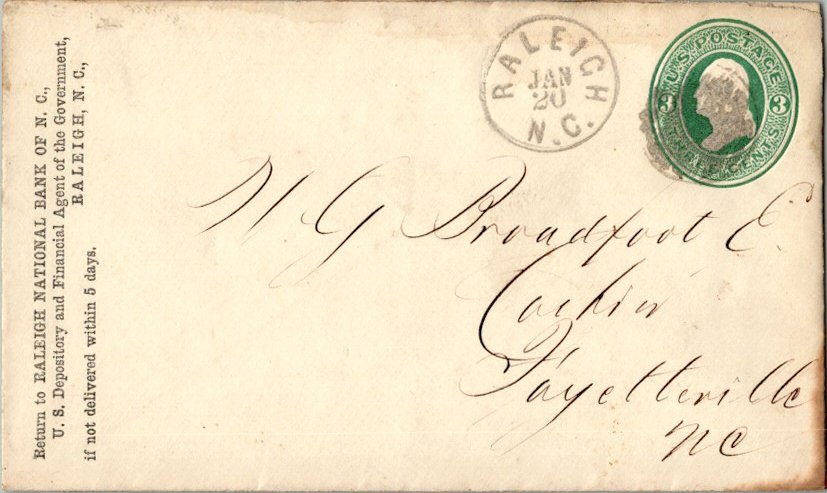 Return to RALEIGH NATIONAL BANK OF N. C.,
U. S. Depository and Financial Agent of the Government,
RALEIGH, N. C.,
if not delivered within 5 days.
RALEIGH
JAN
20
N.C.
U.S. POSTAGE
3 3
THREE CENTS
W G Broadfoot E
Cashier
Fayetteville
NC